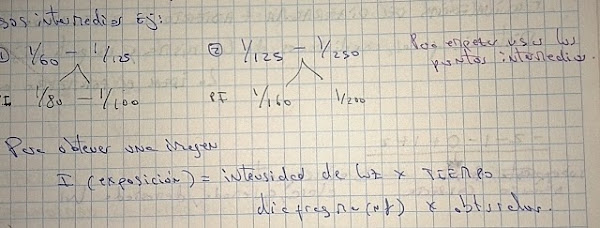 sos intermedios Ej:
① 1/60 — 1/125 ② 1/125 — 1/250 Para empezar usar los
puntos intermedios.
I 1/80 — 1/100 PI 1/160 1/200
Para obtener una imagen
I (exposición) = intensidad de luz x TIEMPO
diafragma (nf) x obturador.